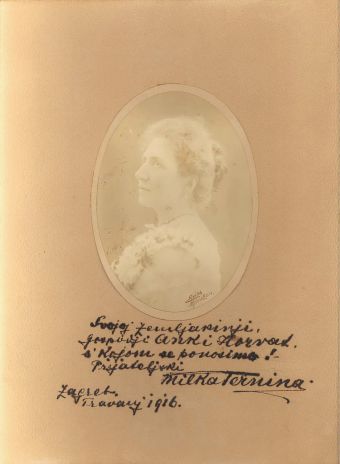 Svojoj zemljakinji,
gospodji Anki Horvat,
s kojom se ponosimo!
Prijateljski
Milka Ternina.
Zagreb.
Travanj 1916.